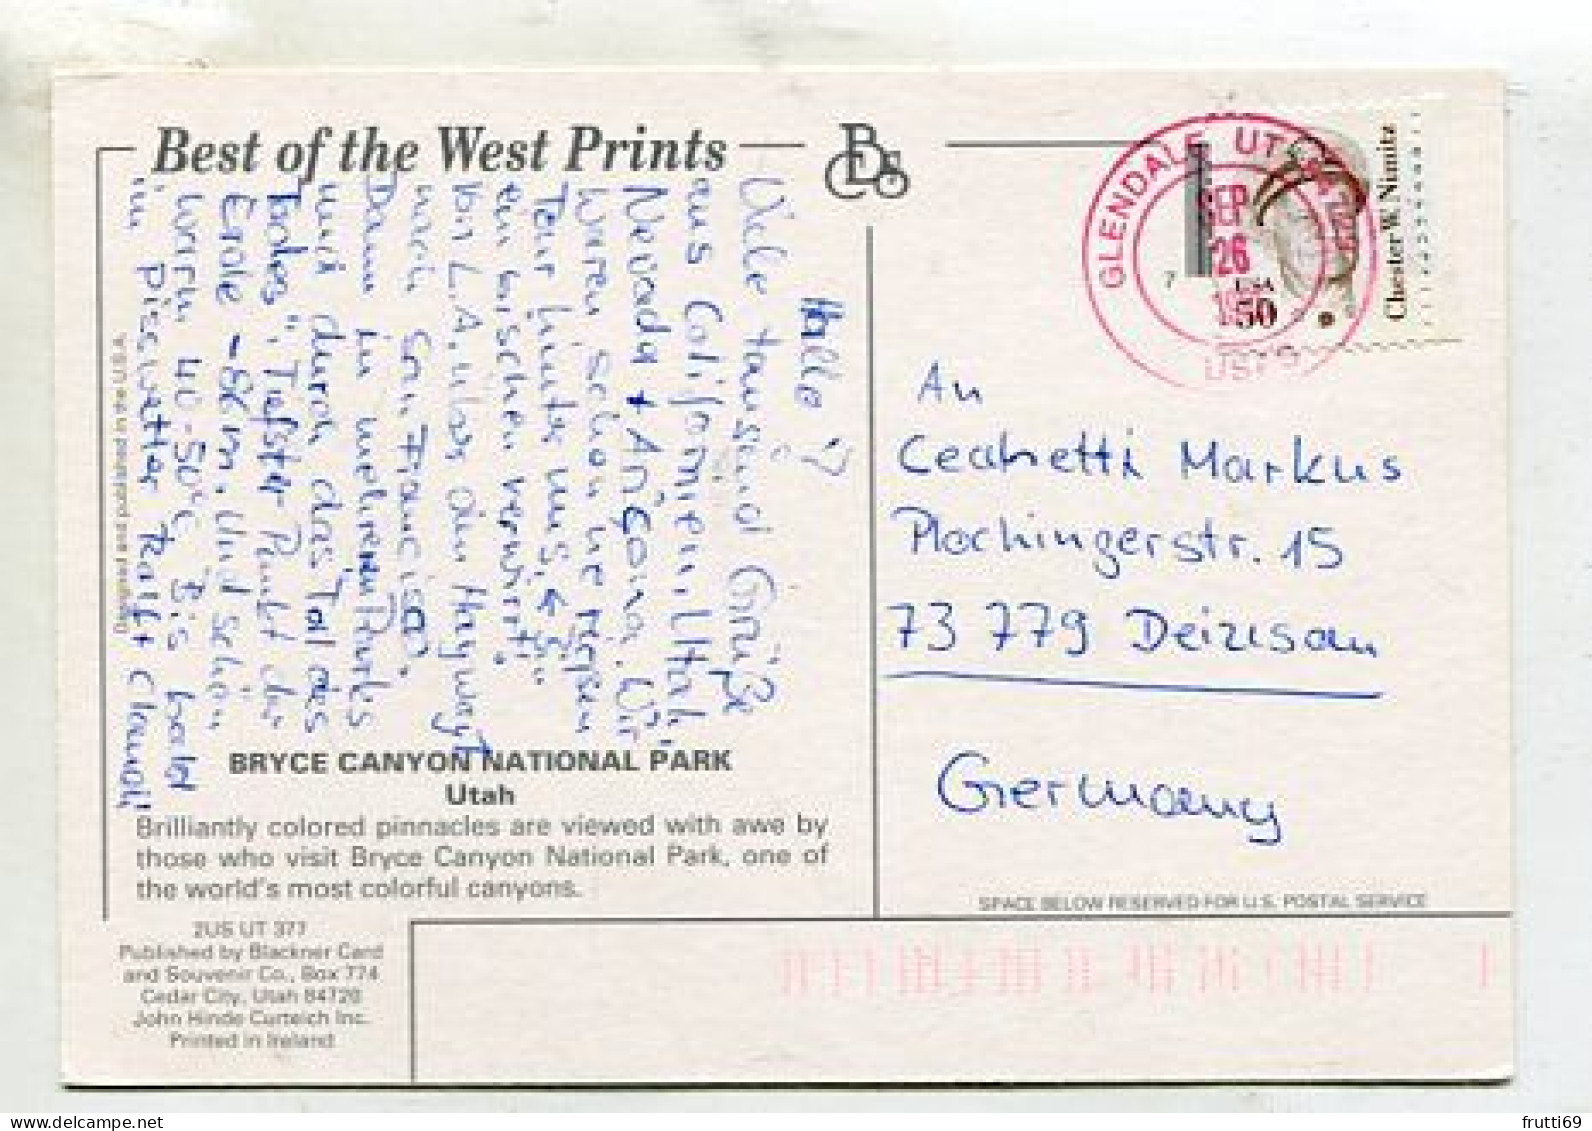 Best of the West Prints
Hallo !
Viele tausend Grüße
aus Californien, Utah,
Nevada + Arizona. Wir
waren schon ne riesen
Tour hinter uns,
von L.A. über den Highway 1
nach San Francisco.
Dann in mehreren Parks
und durch das Tal des
Todes", Tiefster Punkt der
Erde -86m. Und schön
warm 40-50°C. Bis bald
im Ralf + Claudi!
Designed and published in the U.S.A.
BRYCE CANYON NATIONAL PARK
Utah
Brilliantly colored pinnacles are viewed with awe by
those who visit Bryce Canyon National Park, one of
the world's most colorful canyons.
2US UT 377
Published by Blackner Card
and Souvenir Co., Box 774
Cedar City, Utah 84720
John Hinde Curteich Inc.
Printed in Ireland
GLENDALE UT
SEP
26
USPS
USA
50
Chester W. Nimitz
An
Markus
Plochingerstr. 15
73 779 Deizisau
Germany
SPACE BELOW RESERVED FOR U.S. POSTAL SERVICE
frutti69